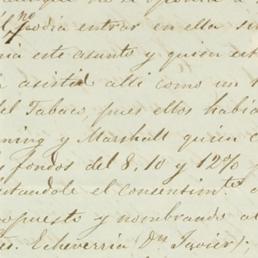 no podia entrar en ella sin
nia este asunto y quien est
asistió alli como un r
del Tabaco pues ellos habia
ning y Marshall quien c
fondos del 8, 10 y 12%
tandole el consentimto
opuesto y nombrando a
es. Echeverria (Dn Javier);